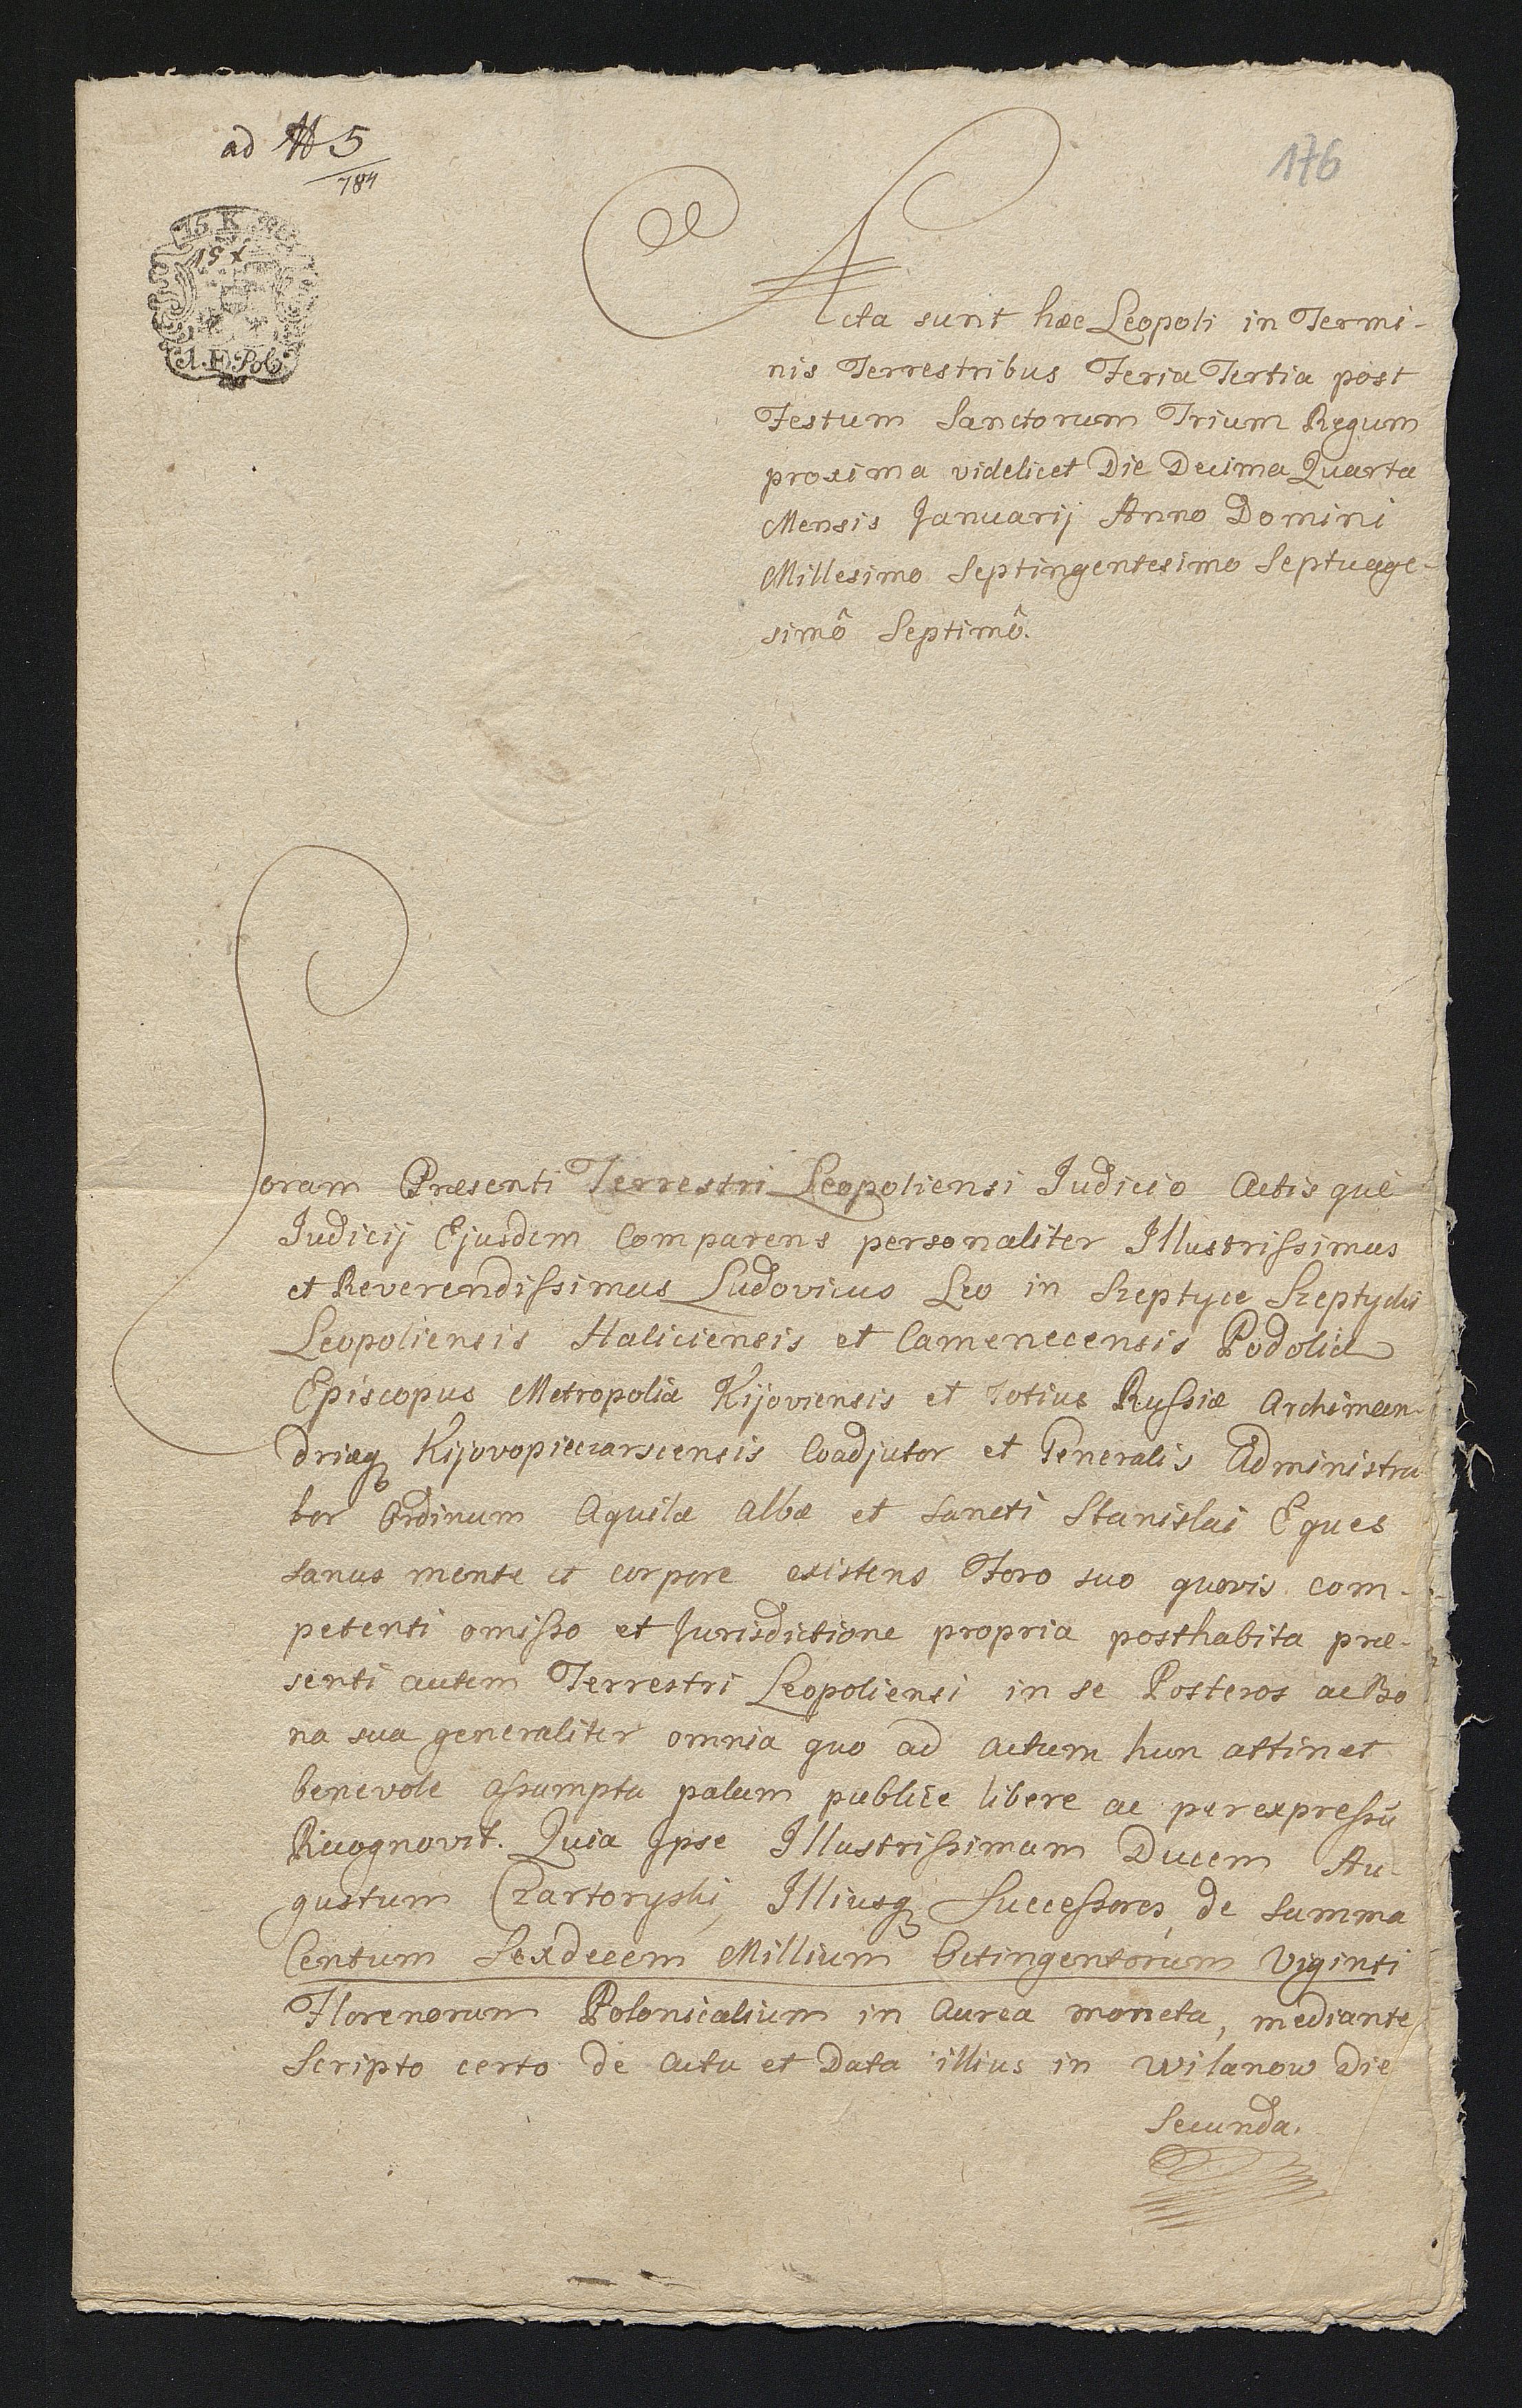 ad № 5
784
176
15 K
15 x
Acta sunt hæc Leopoli in Termi-
nis Terrestribus Feria Tertia post
Festum Sanctorum Trium Regum
proxima videlicet Die Decima Quarta
Mensis Januarij Anno Domini
Millesimo Septingentesimo Septuage-
simô Septimô.
Coram Præsenti Terrestri Leopoliensi Judicio Actisque
Judicij Ejusdem Comparens personaliter Illustrissimus
et Reverendissimus Ludovicus Leo in Szeptyce Szeptycki
Leopoliensis Haliciensis et Camenecensis Podoliæ
Episcopus Metropoliæ Kijoviensis et totius Russiæ Archiman-
driæq Kijovopieczarscensis Coadjutor et Generalis Administra
tor Ordinum Aquilæ Albæ et Sancti Stanislai Eques
sanus mente et corpore existens Foro suo quovis com-
petenti omisso et Jurisdictione propria posthabita præ-
senti autem Terrestri Leopoliensi in se Posteros ac Bo
na sua generaliter omnia quo ad actum hun attinet
benevole assumpta palam publice libere ac per expressũ
Recognovit. Quia Ipse Illustrissimum Ducem Au-
gustum Czartoryski, Illiusq Successores, de Summa
Centum Sexdecem Millium Octingentorum Viginti
Florenorum Polonicalium in Aurea moneta, mediante
Scripto certo de Actu et Data illius in Wilanow Die
Secunda.